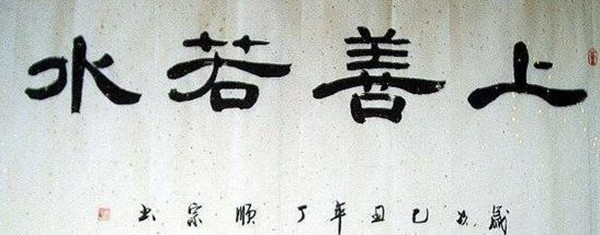 上善若水
歲次己丑年丁順宗书